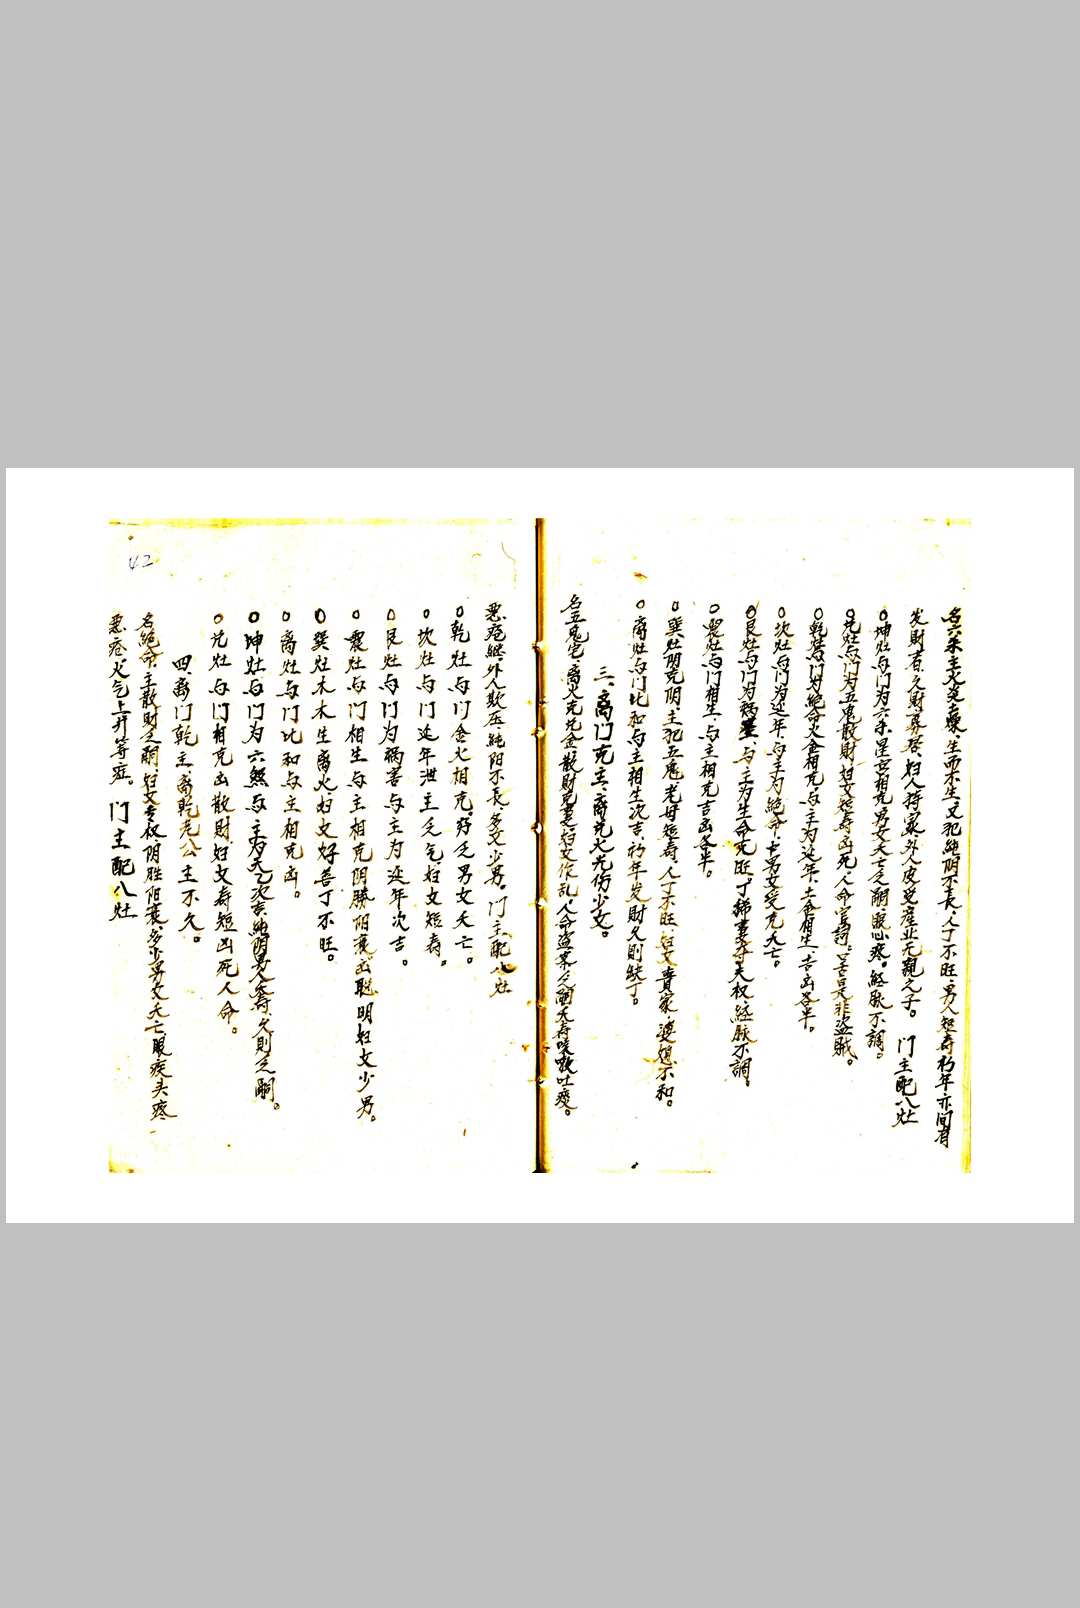 名六杀主火炎土燥,生而不生,又犯純阴不長,人丁不旺,男人短寿,初年亦间有
发財者,久財寡,妇人持家,外人皮受產业元親之子。门主配八灶
○坤灶与门为六杀,星宫相克,男女夭亡乏嗣,眼心疼,経脉不調。
○兑灶与门为五鬼,散財,妇女短寿凶死,人命官詞,口舌是非盗賊。
○乾灶与门为絕命,火金相克,与主为延年,土金相生,吉凶各半。
○坎灶与门为延年,与主为絕命,中男女受克夭亡。
○艮灶与门为祸害,与主为生命宅旺,丁稀妻夺夫权,経脉不調。
○震灶与门相生,与主相克,吉凶各半。
○巽灶阴克阴,主犯五鬼,老母短寿,人丁不旺,妇女責家,婆媳不和。
○离灶与门比和与主相生次吉,初年发財久則缺丁。
三、离门兑主、离兑火光伤少女。
名五鬼宅,离火克兑金,散財克妻,妇女作乱,人命盗案,乏嗣夭寿咳嗽吐痰。
恶疮継外人欺压,純阳不長,多女少男。门主配八灶
○乾灶与门金火相克,好乏男女夭亡。
○坎灶与门延年泄主乏气,妇女短寿。
○艮灶与门为祸害与主为延年次吉。
○震灶与门相生与主相克,阴勝阳衰凶,聪明妇女少男。
○巽灶木木生离火,妇女好善丁不旺。
○离灶与门比和与主相克凶。
○坤灶与门为六煞与主为天乙次吉,純阴男人夭寿,久則乏嗣。
○兑灶与门相克凶散財,妇女寿短凶死人命。
四、离门乾主、离乾老公主不久。
名絕命,主散財乏嗣,妇女专权阴胜阳衰,多少男女夭亡,眼疾头疼
恶疮火气上升等症。门主配八灶
42